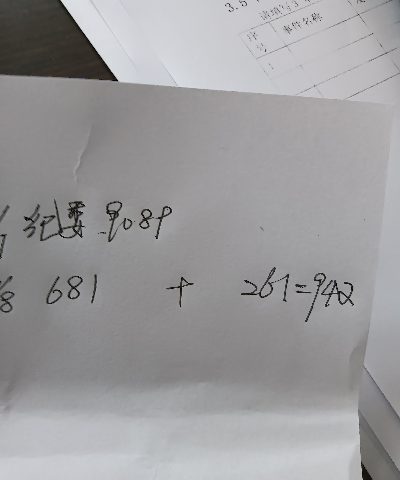 3.5
请填写3.
序号 事件名称
1
纪委 9089
8 681 + 261=942